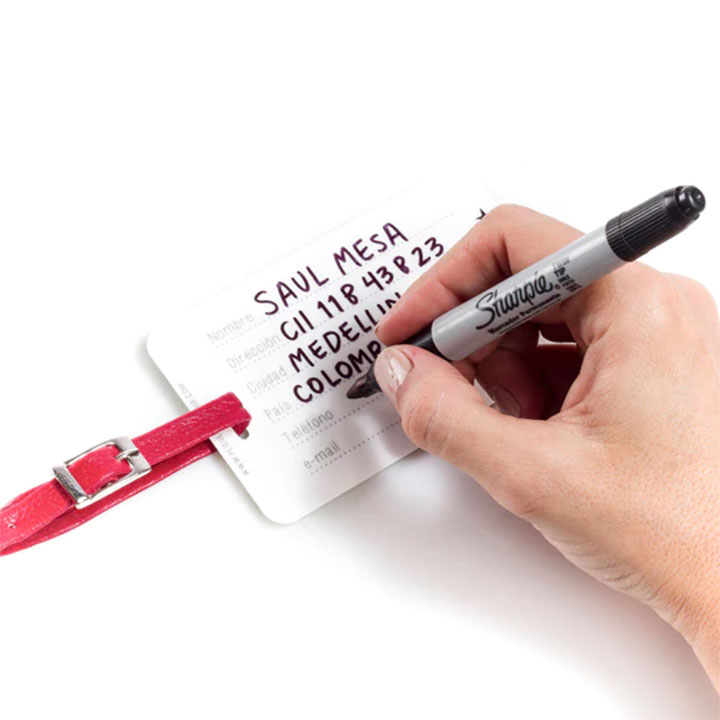 Nombre SAUL MESA
Dirección Cll 118 43B 23
Ciudad MEDELLIN
País COLOMB
Teléfono
e-mail
Sharpie
Marcador Permanente